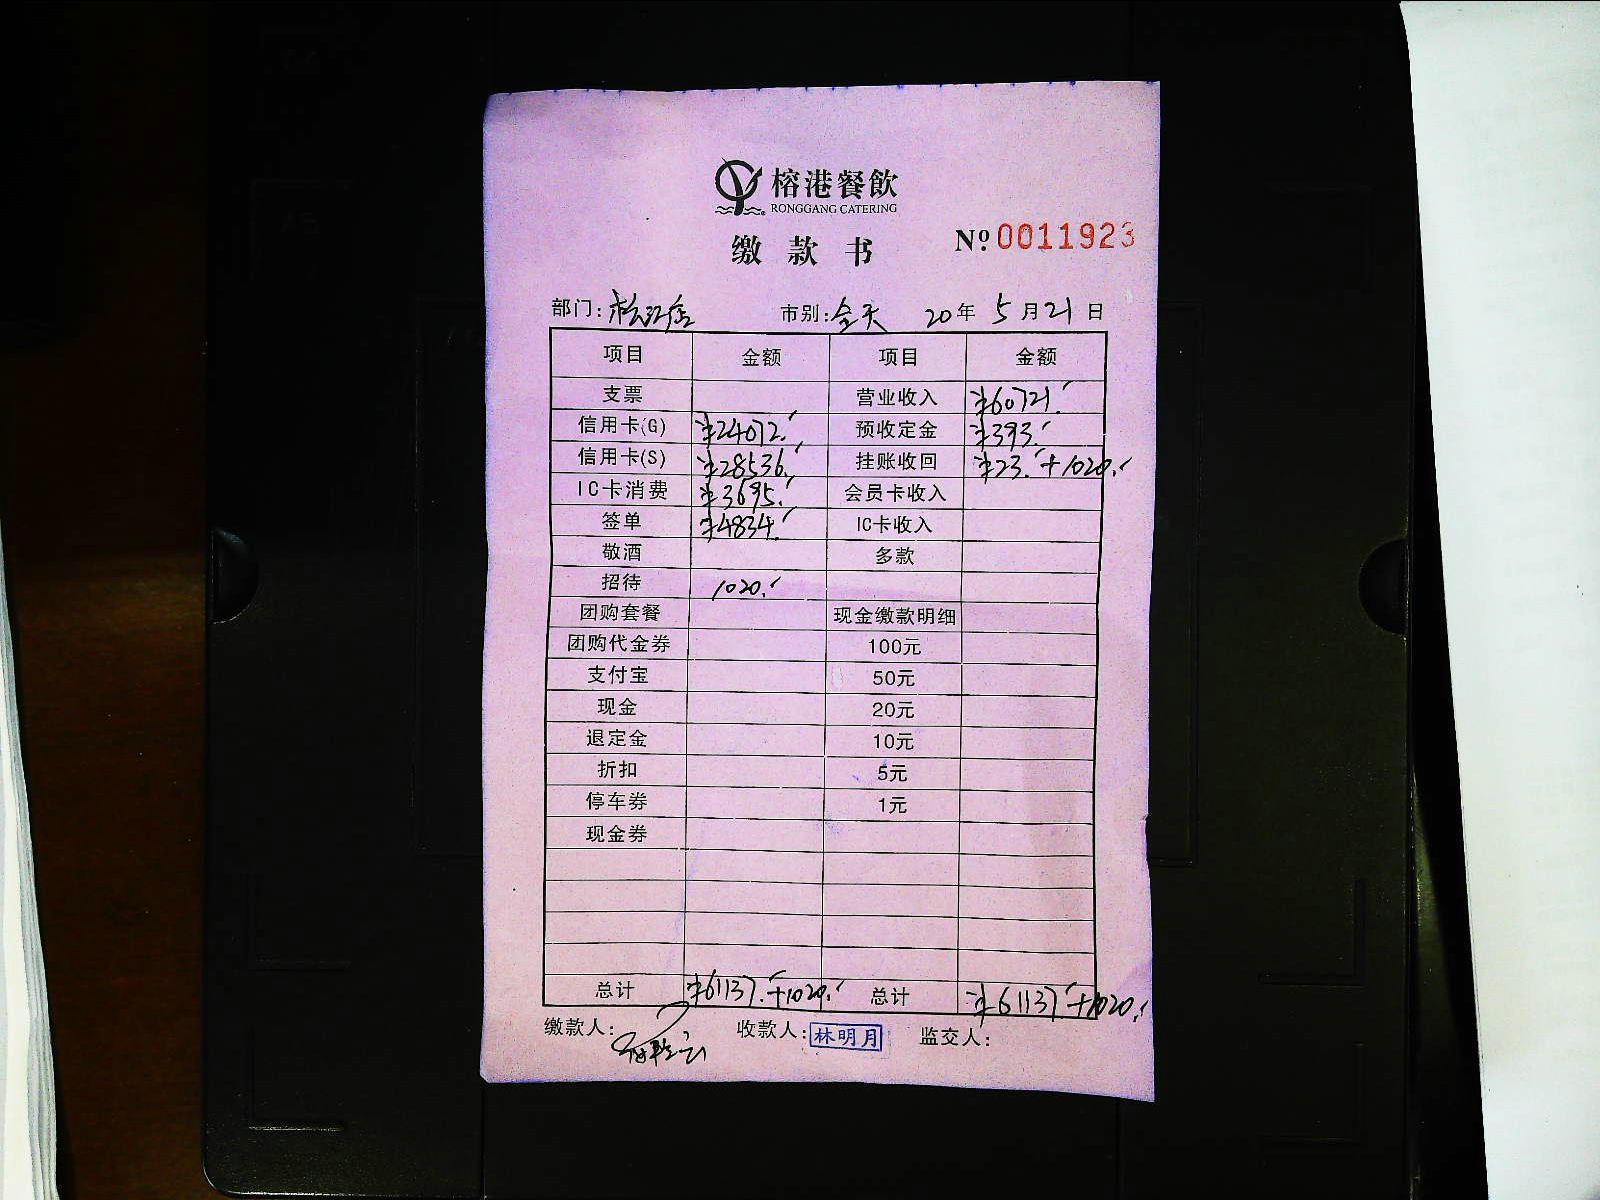 榕港餐飲
RONGGANG CATERING
缴款书
№ 0011923
部门: 松江店 市别: 全天 20年 5月21日
项目 金额 项目 金额
支票 营业收入 ¥60721.
信用卡(G) ¥24072. 预收定金 ¥393.
信用卡(S) ¥28536. 挂账收回 ¥23.+1020.
IC卡消费 ¥3695. 会员卡收入
签单 ¥4834. IC卡收入
敬酒 多款
招待 1020.
团购套餐 现金缴款明细
团购代金券 100元
支付宝 50元
现金 20元
退定金 10元
折扣 5元
停车券 1元
现金券
总计 ¥61137.+1020. 总计 ¥61137.+1020.
缴款人: 收款人: 林明月 监交人: